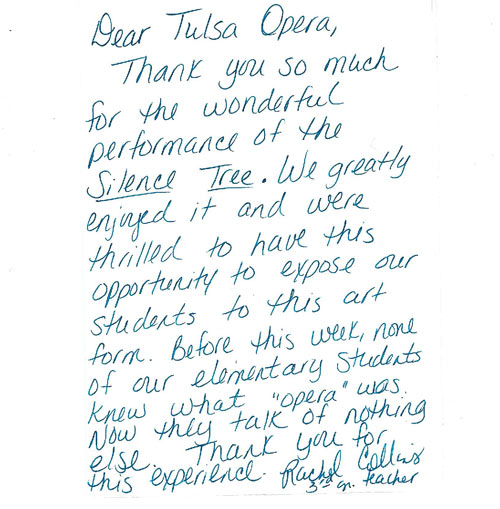 Dear Tulsa Opera,
Thank you so much
for the wonderful
performance of the
Silence Tree. We greatly
enjoyed it and were
thrilled to have this
opportunity to expose our
students to this art
form. Before this week, none
of our elementary students
knew what "opera" was.
Now they talk of nothing
else. Thank you for
this experience. Rachel Collins
3rd gr. teacher